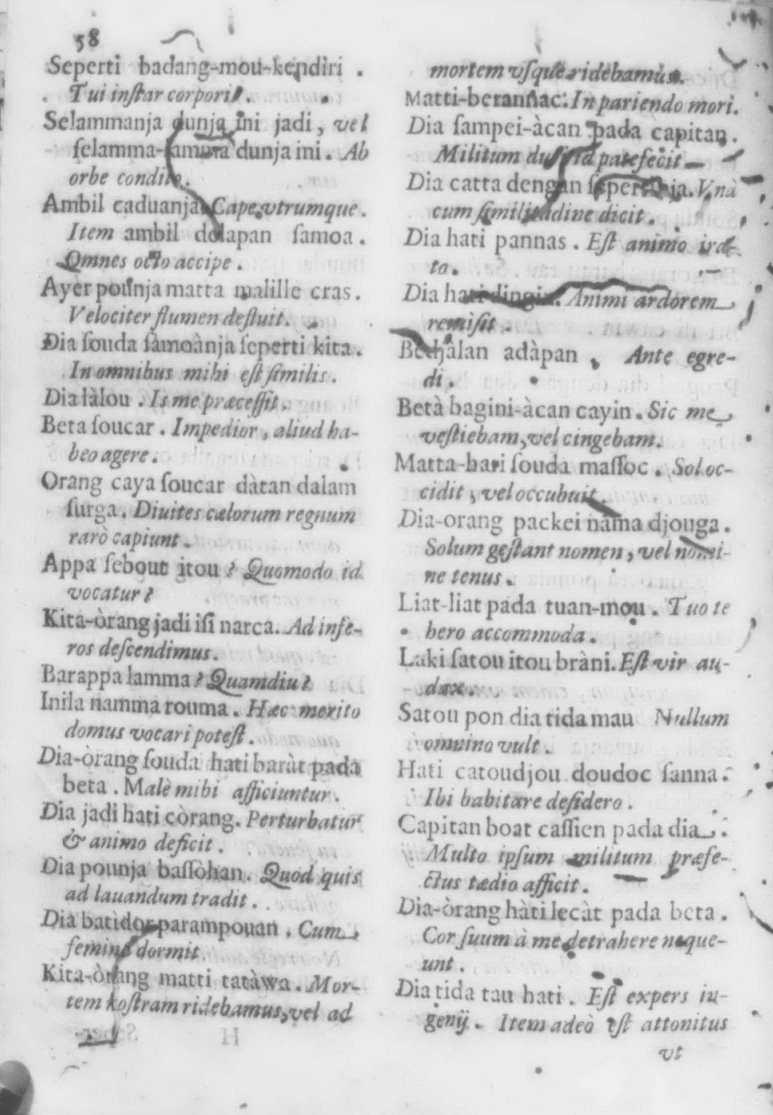 58
Seperti badang-mou-kendiri .
Tui inſtar corporis.
Selammanja dunja ini jadi, vel
ſelamma-lamma dunja ini. Ab
orbe condito.
Ambil caduanja. Cape utrumque.
Item ambil delapan ſamoa.
Omnes octo accipe.
Ayer pounja matta malille cras.
Velociter flumen defluit.
Dia ſouda ſamoànja ſeperti kita.
In omnibus mihi eſt ſimilis.
Dia làlou. Is me præceſſit.
Beta ſoucar. Impedior, aliud ha-
beo agere.
Orang caya ſoucar dàtan dalam
ſurga. Diuites cælorum regnum
rarò capiunt.
Appa ſebout itou? Quomodo id
vocatur?
Kita-òrang jadi iſi narca. Ad infe-
ros deſcendimus.
Barappa lamma? Quamdiu?
Inila namma rouma. Hæc merito
domus vocari poteſt.
Dia-òrang ſouda hati baràt pada
beta. Malè mihi afficiuntur.
Dia jadi hati còrang. Perturbatur
& animo deficit.
Dia pounja baſſòhan. Quod quis
ad lauandum tradit.
Dia batidor parampouan. Cum
femina dormit
Kita-òrang matti tatàwa. Mor-
tem noſtram ridebamus, vel ad
mortem vſque ridebamus.
Matti-berannac. In pariendo mori.
Dia ſampei-àcan pada capitan.
Militum patefecit
Dia catta dengan Vnà
cum ſimilitudine dicit.
Dia hati pannas. Eſt animo ira-
to.
Dia hati dingin. Animi ardorem
remiſit.
Bedjalan adàpan, Ante egre-
di.
Betà bagini-àcan cayin. Sic me
veſtiebam, vel cingebam.
Matta-hari ſouda maſſoc. Sol oc-
cidit, vel occubuit.
Dia-orang packei nama djouga.
Solum geſtant nomen, vel nomi-
ne tenus.
Liat-liat pada tuan-mou. Tuo te
hero accommoda.
Laki ſatou itou bràni. Eſt vir au-
dax.
Satou pon dia tida mau Nullum
omnino vult.
Hati catoudjou doudoc ſanna.
Ibi habitare deſidero.
Capitan boat caſſien pada dia.
Multo ipſum militum præfe-
ctus tædio afficit.
Dia-òrang hàti lecàt pada beta.
Cor ſuum à me detrahere neque-
unt.
Dia tida tau hati. Eſt expers in-
genij. Item adeò eſt attonitus
vt